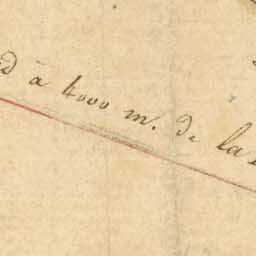 à 4000 m. de la